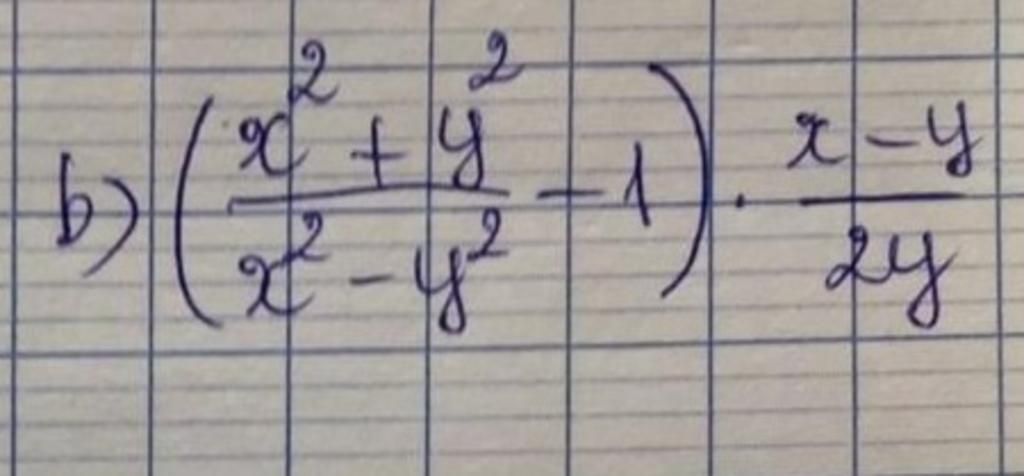 b) (\frac{x^2 + y^2}{x^2 - y^2} - 1) \cdot \frac{x - y}{2y}